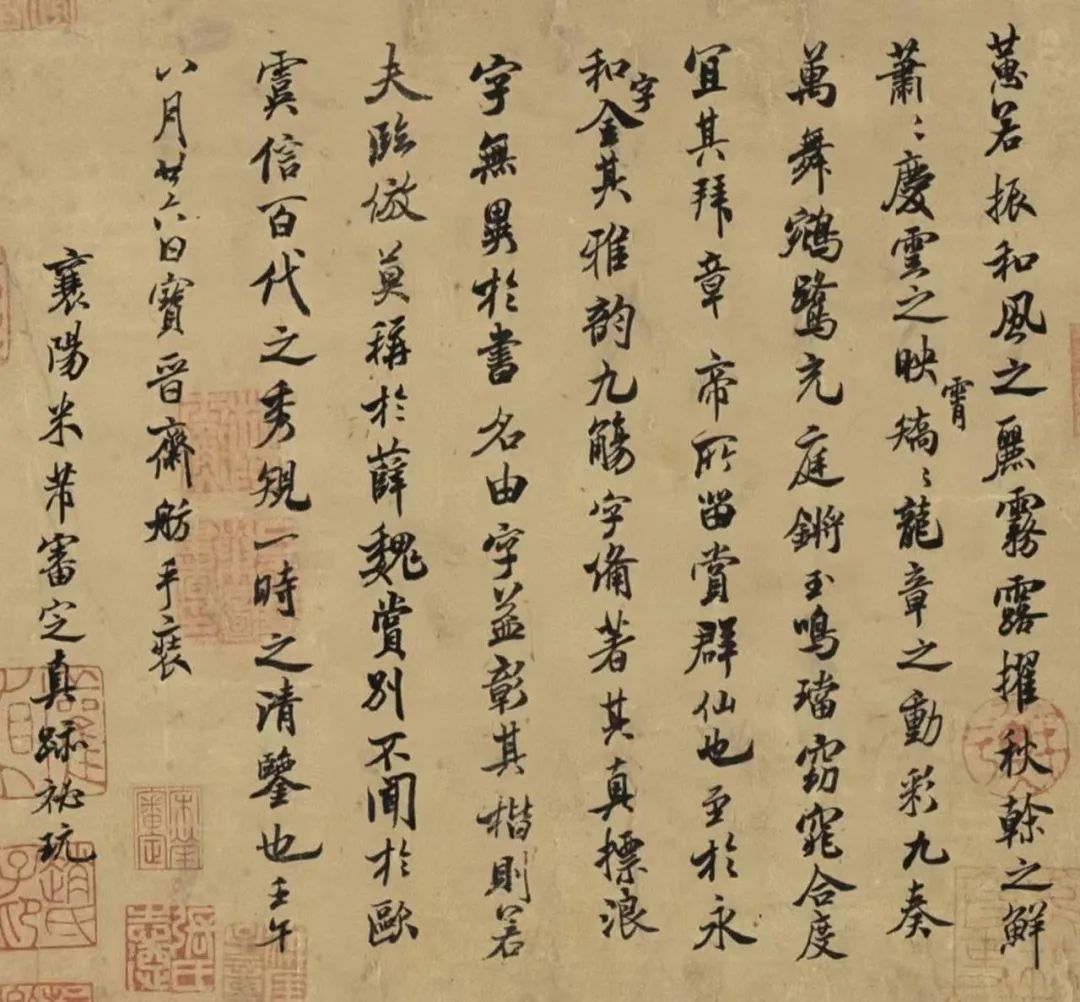 蕙若振和風之麗霧露擢秋幹之鮮
蕭〻慶雲之映霄矯〻龍章之動彩九奏
萬舞鵷鷺充庭鏘玉鳴璫窈窕合度
宜其拜章帝所留賞群仙也至於永
和字全其雅韵九觴字備著其真標浪
字無異於書名由字益彰其楷則若
夫臨倣莫稱於薛魏賞別不聞於歐
虞信百代之秀規一時之清鑒也壬午
八月廿六日寶晉齋舫手裝
襄陽米芾審定真跡祕玩